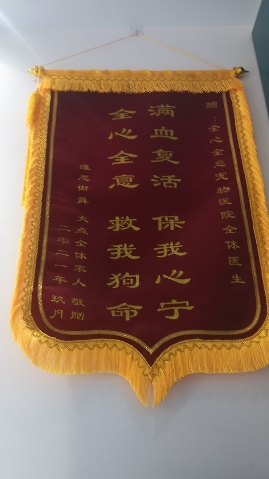 赠：全心全意宠物医院全体医生
满血复活 保我心宁
全心全意 救我狗命
雅思街舞 大点全体家人 敬贈
二零二一年 玖月